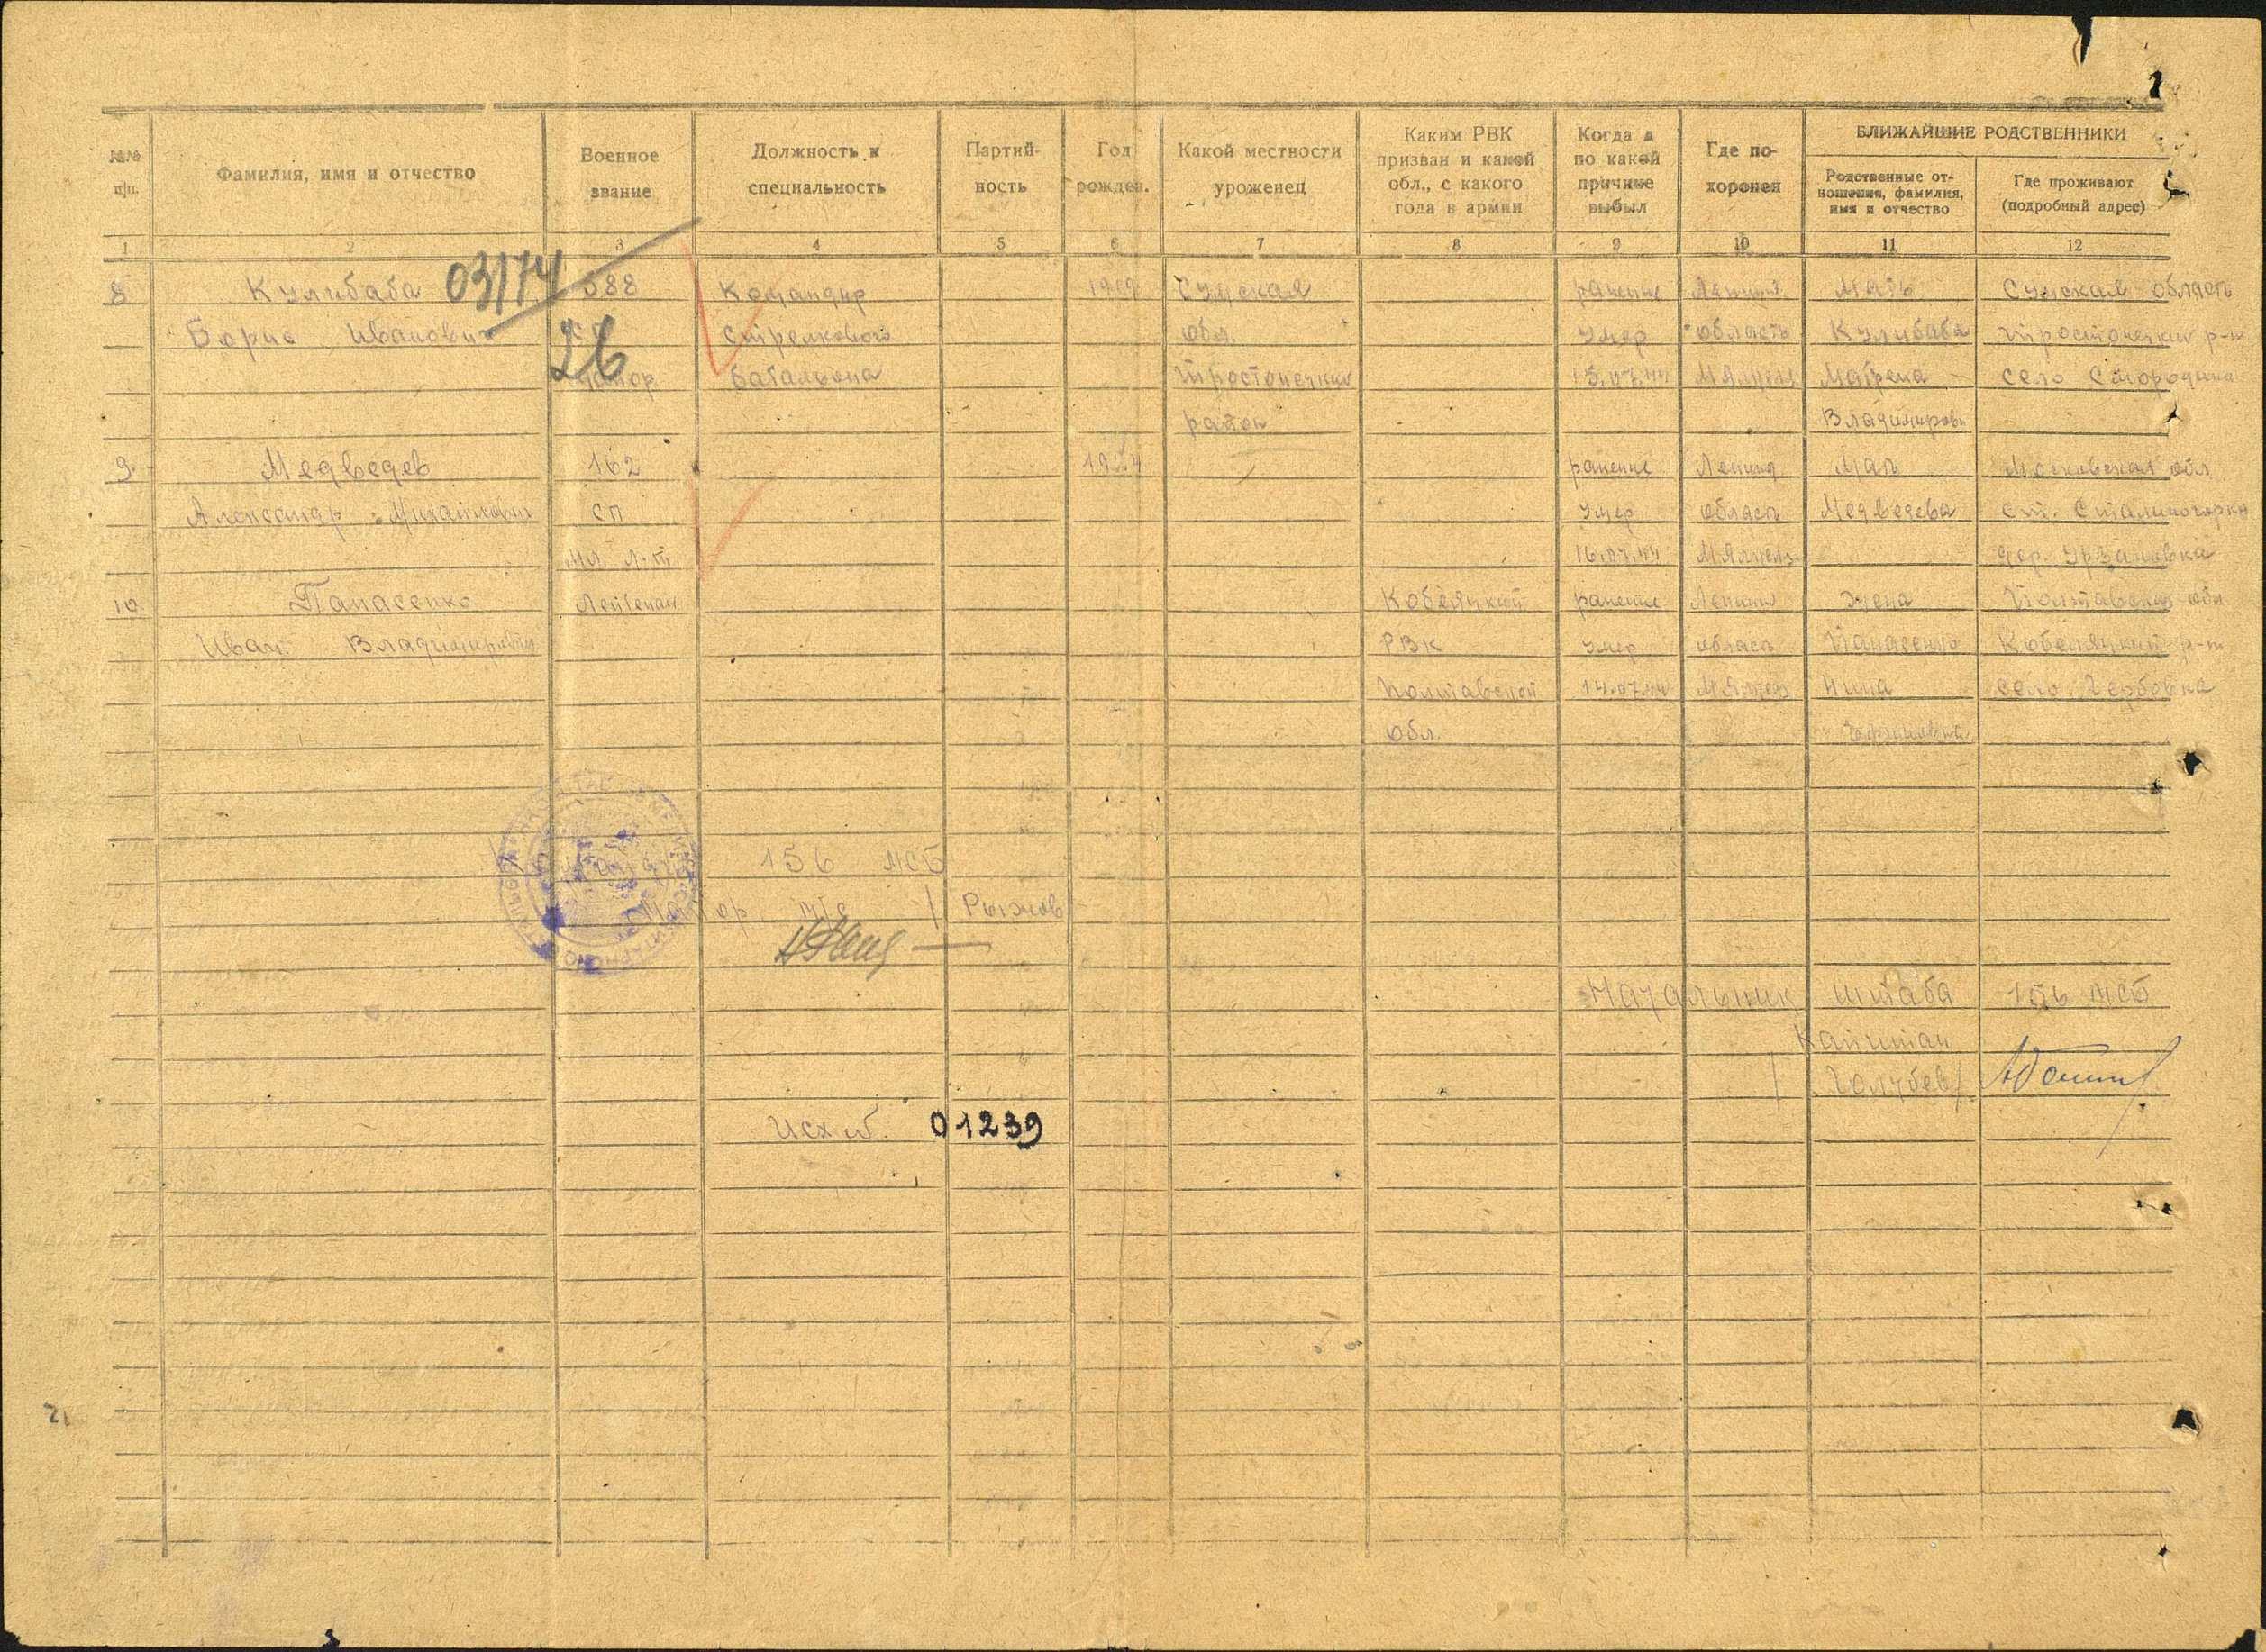 1
№№ п/п.
Фамилия, имя и отчество
Военное звание
Должность и специальность
Партийность
Год рожден.
Какой местности уроженец
Каким РВК призван и какой обл., с какого года в армии
Когда и по какой причине выбыл
Где похоронен
БЛИЖАЙШИЕ РОДСТВЕННИКИ
Родственные отношения, фамилия, имя и отчество
Где проживают (подробный адрес)
1 2 3 4 5 6 7 8 9 10 11 12
03174
26
8 Кулибаба 588 Командир 1919 Сумская ранение Ленингр. Мать Сумская область
Борис Иванович СП стрелкового обл. умер область Кулибаба Тростонецкий р-н
майор батальона Тростонецкий 15.07.44 Матрена село
район Владимировн
9. Медведев 162 1924 ранение Ленинг Мать Московская обл
Александр Михайлович СП умер область Медведева ст. Сталиногорск
мл. л-т 16.07.44
10. Панасенко Лейтенан Кобеляцкий ранение Ленинг жена Полтавская обл
Иван Владимирович РВК умер область Панасенко Кобеляцкий р-н
Полтавской 14.07.44 Нина село
обл.
156 МСБ
Майор м/с / Рыжов
Начальник штаба 156 МСБ
Капитан
/ Голубев /
Исх №. 01239
21